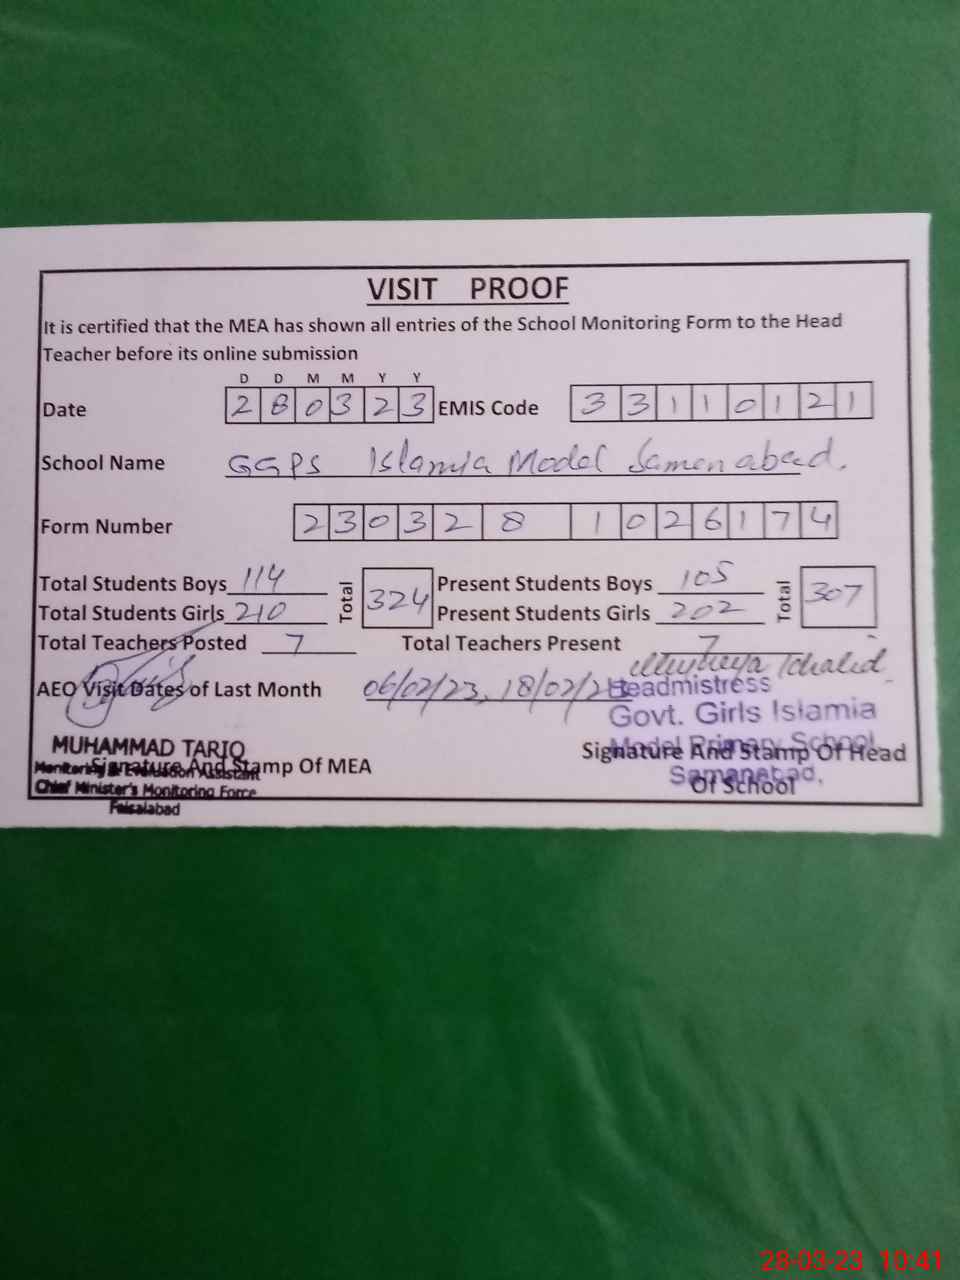 VISIT PROOF
It is certified that the MEA has shown all entries of the School Monitoring Form to the Head
Teacher before its online submission
D D M M Y Y
Date 2 8 0 3 2 3 EMIS Code 3 3 1 1 0 1 2 1
School Name GGPS Islamia Model Samenabad.
Form Number 2 3 0 3 2 8 1 0 2 6 1 7 4
Total Students Boys 114 Total 324 Present Students Boys 105 Total 307
Total Students Girls 210 Present Students Girls 202
Total Teachers Posted 7 Total Teachers Present 7
Khalid
AEO Visit Dates of Last Month 06/02/23, 18/02/2
Headmistress
Govt. Girls Islamia
Model Primary School
Samanabad.
MUHAMMAD TARIQ
Monitoring & Evaluation Assistant
Chief Minister's Monitoring Force
Faisalabad
Signature And Stamp Of MEA
Signature And Stamp Of Head
Of School
28-03-23 10:41